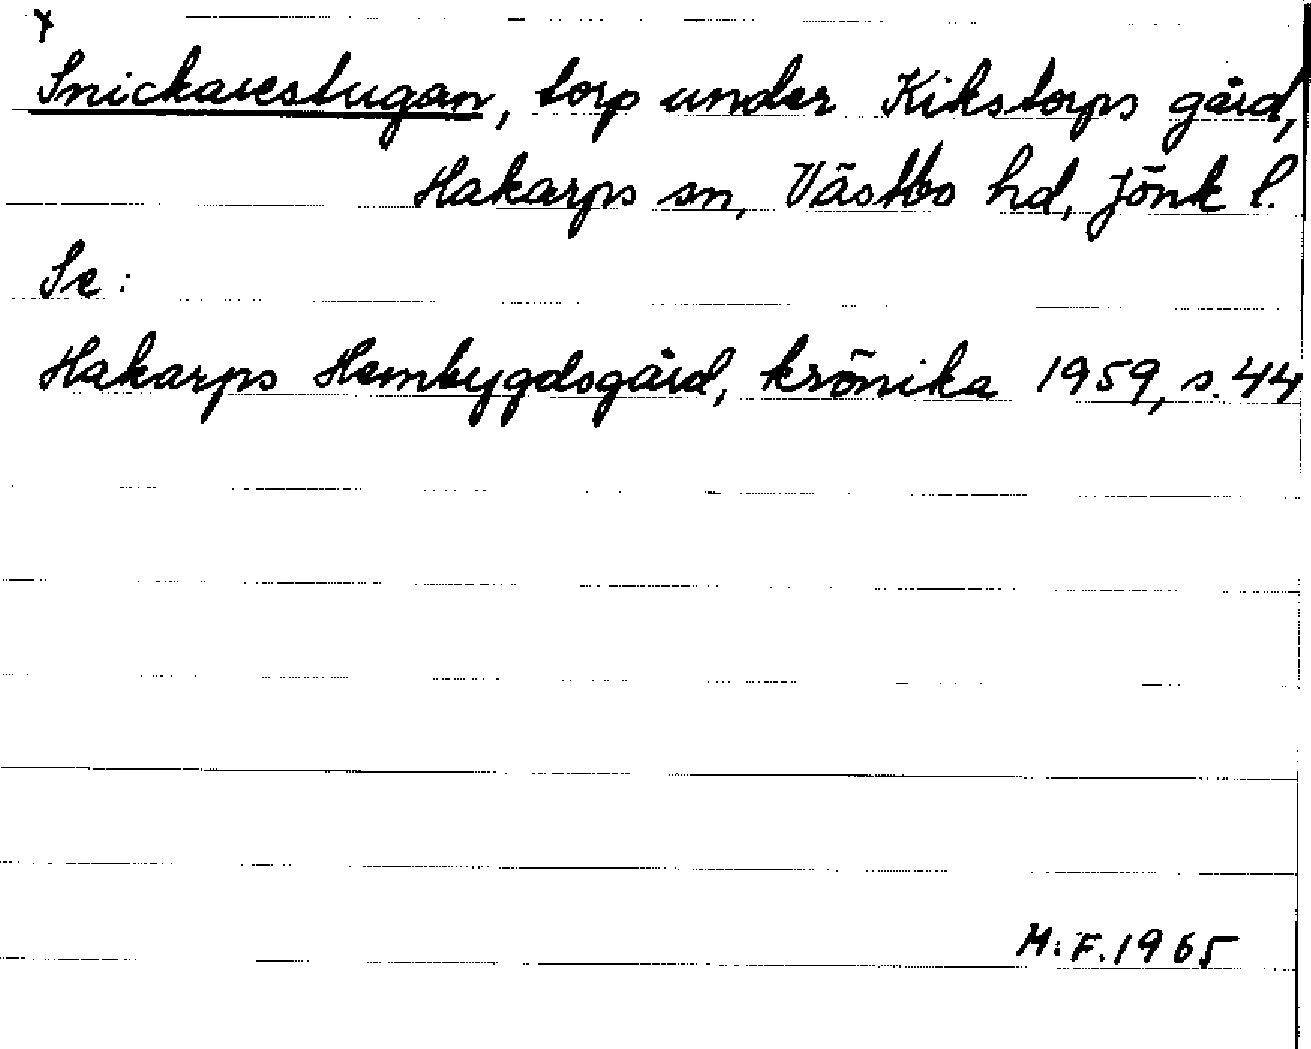 x
Snickarestugan, torp under Kikstorps gård,
Hakarps sn, Västbo hd, Jönk l.
Se:
Hakarps Hembygdsgård, krönika 1959, s. 44
M.F. 1965